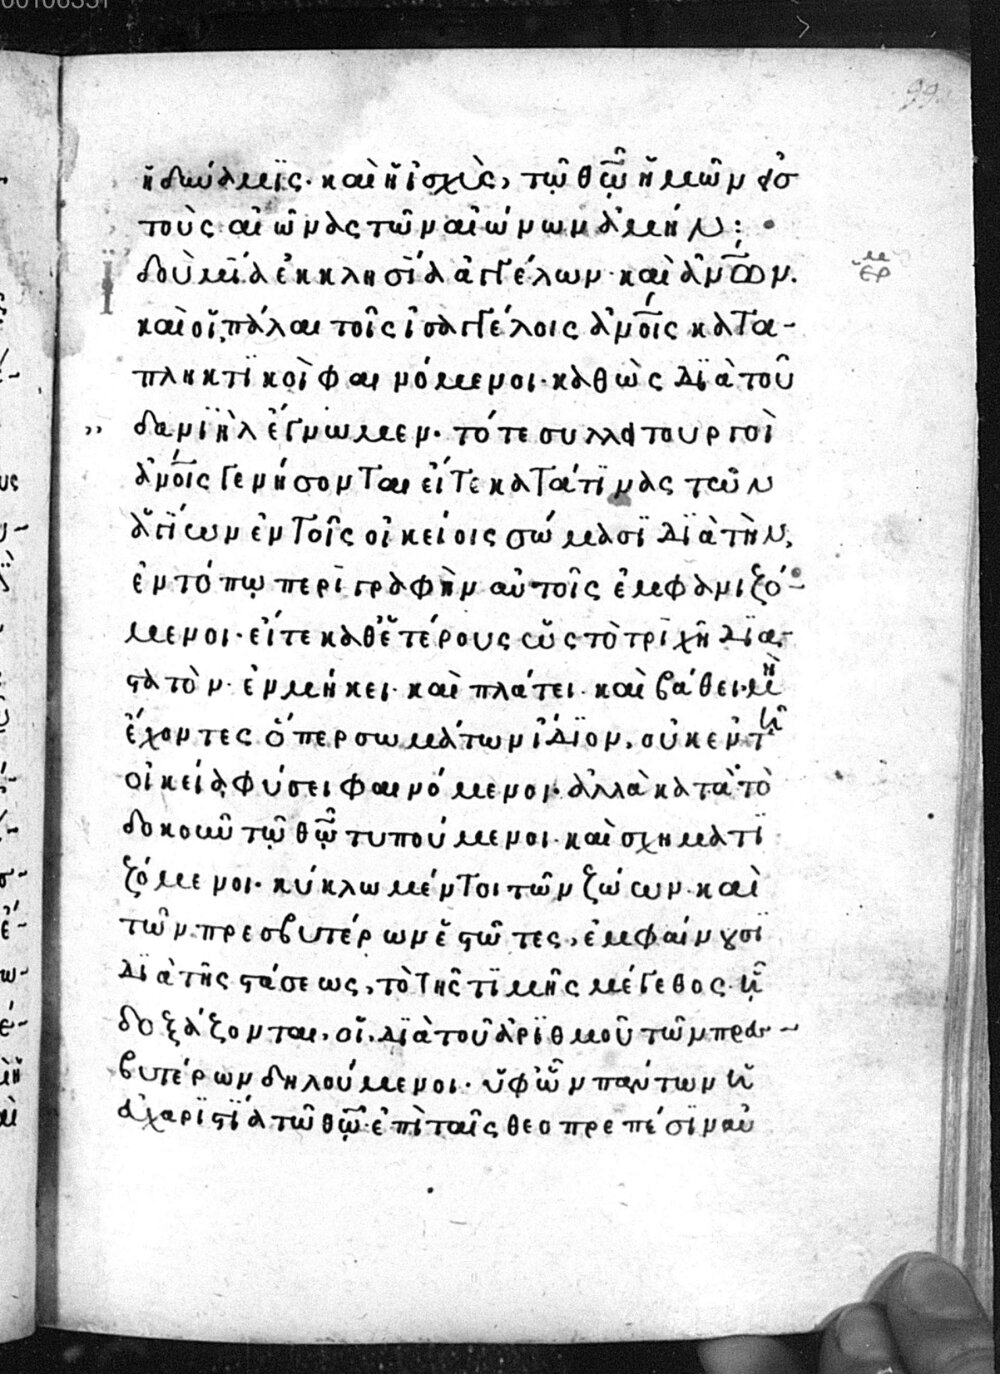 00106351
99
ἡ δύναμϊς· καὶ ἡ ἰσχὺς, τῷ θῷ ἡμῶν εἰσ
τοὺς αἰῶνας τῶν αἰώνων ἀμήν:
Ϊδοὺ μΐα ἐκκλησΐα ἀγγέλων· καὶ ἀνῶν.
μ
ερ
καὶ οἱ πάλαι τοῖς ἰσαγγέλοις ἀνοῖς κατα-
πληκτϊκοὶ φαινόμενοι· καθὼς δϊὰ τοῦ
δανϊὴλ ἔγνωμεν· τότε συλλειτουργοὶ
ἀνοῖς γενήσονται εἴτε κατά τϊνας τῶν
ἁγΐων ἐν τοῖς οἰκείοις σώμασϊ δϊὰ τὴν,
ἐν τόπῳ περϊγραφὴν αὐτοῖς ἐμφανιζό-
μενοι· εἴτε καθ' ἑτέρους ὡς τὸ τρϊχῆ δϊα-
στατὸν· ἐν μήκει· καὶ πλάτει· καὶ βάθει· μὴ
ἔχοντες ὅπερ σωμάτων ἰδϊον, οὐκ ἐν τῆ
οἰκείᾳ φύσει φαινόμενοι· ἀλλὰ κατὰ τὸ
δοκοῦν τῷ θῷ τυπούμενοι· καὶ σχηματϊ
ζόμενοι· κύκλω μέντοι τῶν ζώων· καὶ
τῶν πρεσβυτέρων ἑστῶτες, ἐμφαίνουσϊ
δϊὰ τῆς στάσεως, τὸ τῆς τϊμῆς μέγεθος· ᾗ
δοξάζονται, οἱ δϊὰ τοῦ ἀρϊθμοῦ τῶν πρε-
βυτέρων δηλούμενοι· ὑφ' ὧν πάντων ἡ
εὐχαρϊστΐα τῷ θῷ· ἐπὶ ταῖς θεοπρεπέσϊν αὐ